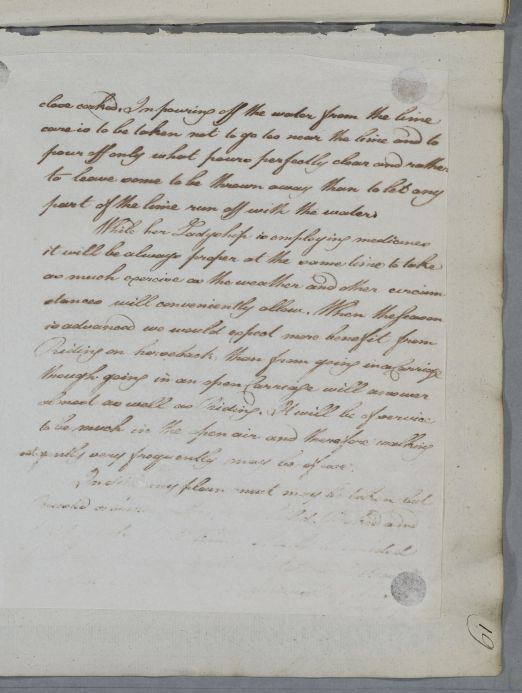 close corked. In pouring off the water from the lime
care is to be taken not to go too near the lime and to
pour off only what pours perfectly clear and rather
to leave some to be thrown away than to let any
part of the lime run off with the water.
While her Ladyship is employing medicines
it will be always proper at the same time to take
as much exercise as the weather and other circum
stances will conveniently allow. When the season
is advanced we would expect more benefit from
Riding on horseback than from going in a Carriage
though going in an open Carriage will answer
almost as well as Riding. It will be of service
to be much in the open air and therefore walking
very frequently may be of use.
any plain meat may be taken but
19